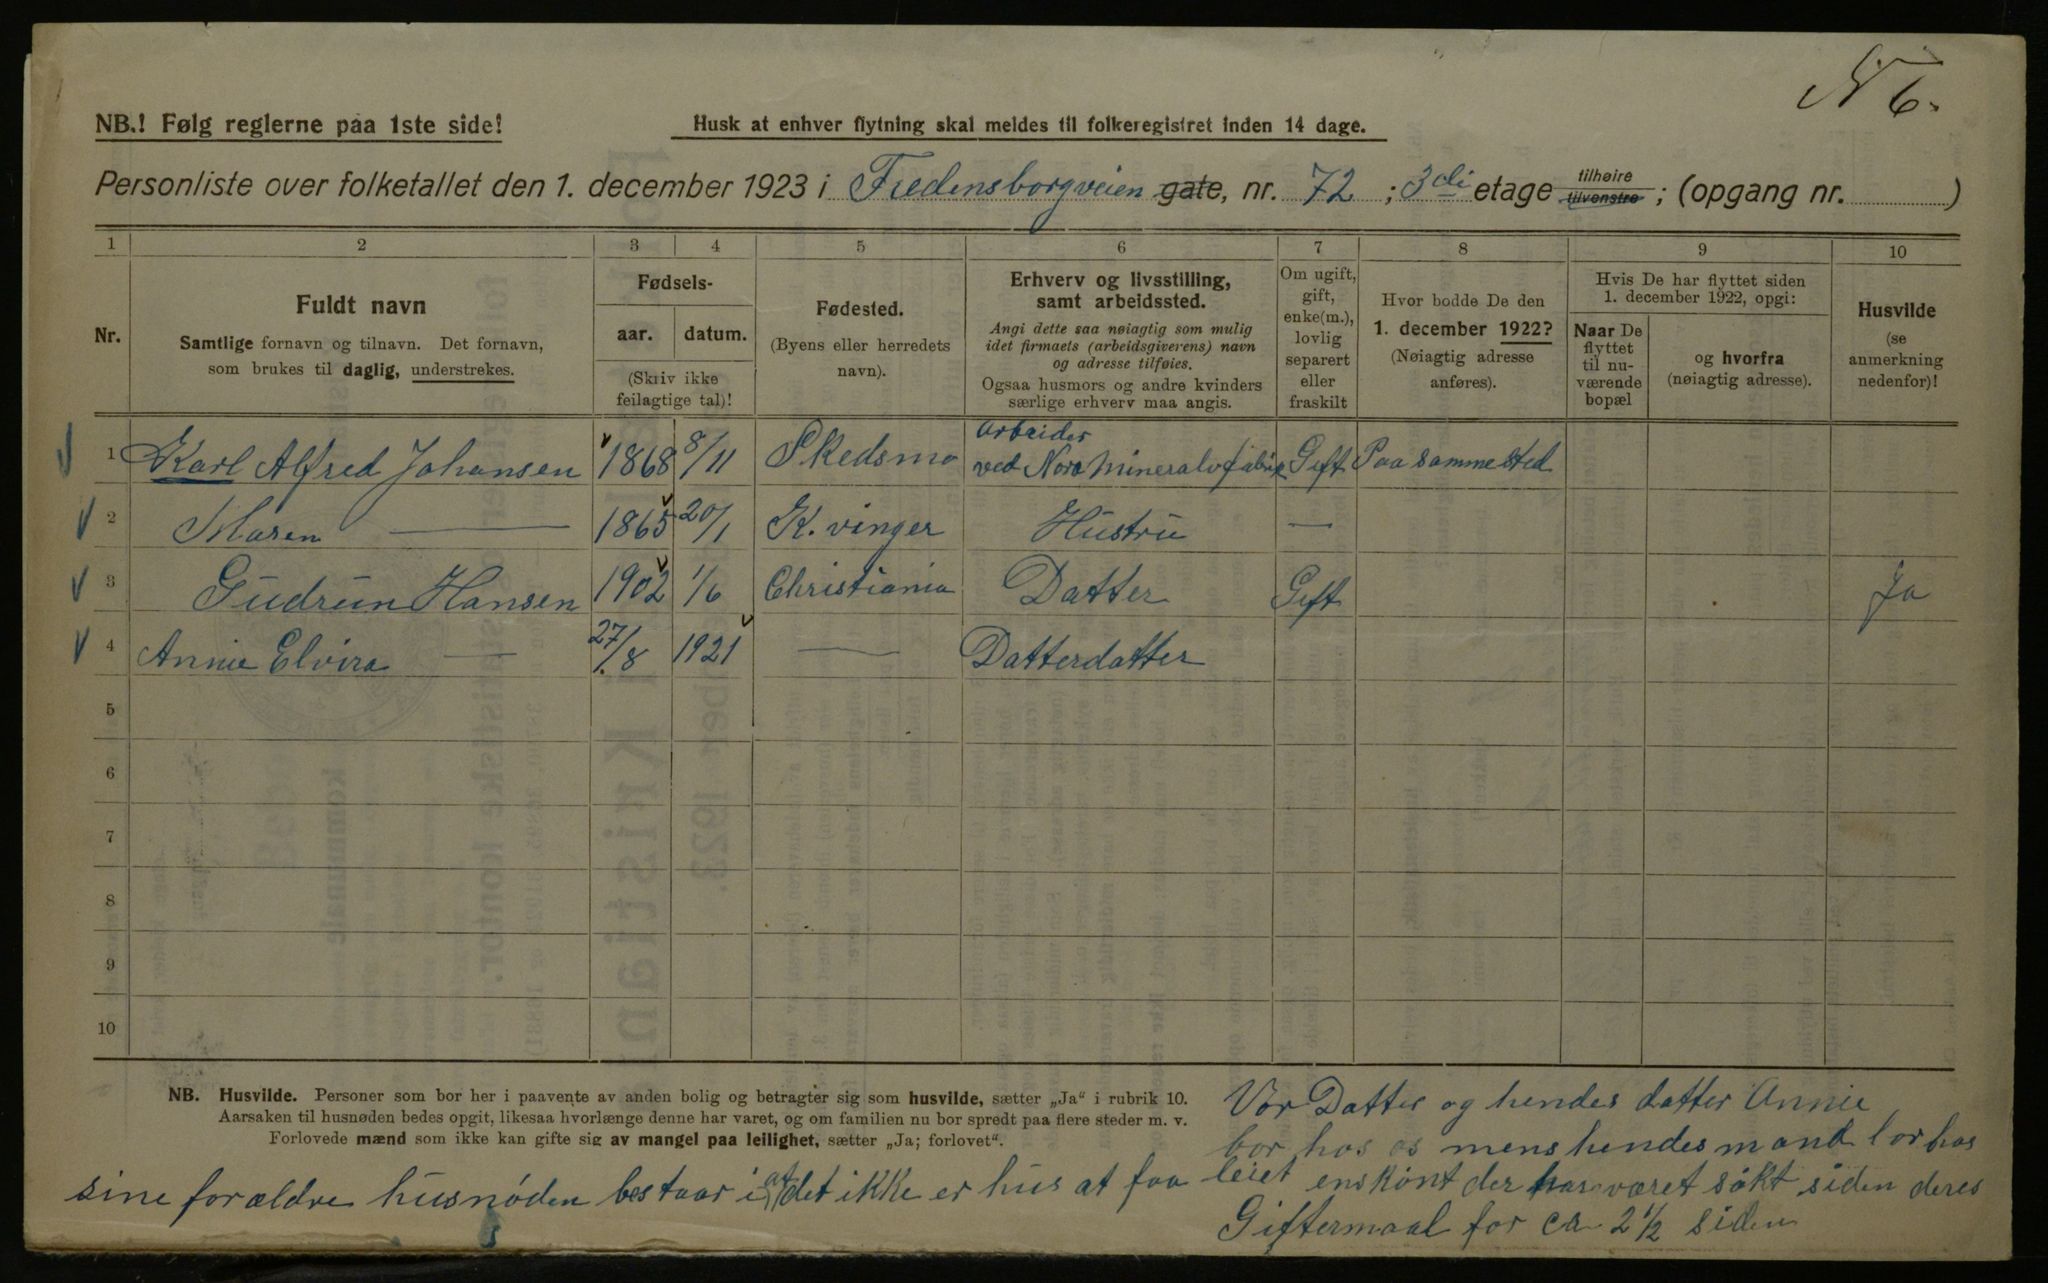 N 6.
NB.! Følg reglerne paa 1ste side!
Husk at enhver flytning skal meldes til folkeregistret inden 14 dage.
Personliste over folketallet den 1. december 1923 i Fredensborgveien gate, nr. 72 ; 3di etage tilhøire tilvenstre ; (opgang nr. )
1 2 3 4 5 6 7 8 9 10
Nr.
Fuldt navn
Samtlige fornavn og tilnavn. Det fornavn,
som brukes til daglig, understrekes.
Fødsels-
aar. datum.
(Skriv ikke
feilagtige tal)!
Fødested.
(Byens eller herredets
navn).
Erhverv og livsstilling,
samt arbeidssted.
Angi dette saa nøiagtig som mulig
idet firmaets (arbeidsgiverens) navn
og adresse tilføies.
Ogsaa husmors og andre kvinders
særlige erhverv maa angis.
Om ugift,
gift,
enke(m.),
lovlig
separert
eller
fraskilt
Hvor bodde De den
1. december 1922?
(Nøiagtig adresse
anføres).
Hvis De har flyttet siden
1. december 1922, opgi:
Naar De
flyttet
til nu-
værende
bopæl
og hvorfra
(nøiagtig adresse).
Husvilde
(se
anmerkning
nedenfor)!
1 Karl Alfred Johansen 1868 8/11 Skedsmo arbeider ved Nora Mineralvfabrik Gift Paa samme sted
2 Maren — 1865 20/1 K. vinger Hustru —
3 Gudrun Hansen 1902 1/6 Christiania Datter Gift Ja
4 Annie Elvira — 27/8 1921 — Datterdatter
5
6
7
8
9
10
NB. Husvilde. Personer som bor her i paavente av anden bolig og betragter sig som husvilde, sætter „Ja“ i rubrik 10.
Aarsaken til husnøden bedes opgit, likesaa hvorlænge denne har varet, og om familien nu bor spredt paa flere steder m. v.
Forlovede mænd som ikke kan gifte sig av mangel paa leilighet, sætter „Ja; forlovet“.
Vor Datter og hendes datter Annie
bor hos os mens hendes mand bor hos
sine forældre husnøden bestaar i at det ikke er hus at faa leiet enskönt der har været søkt siden deres
Giftermaal for ca 2 1/2 siden